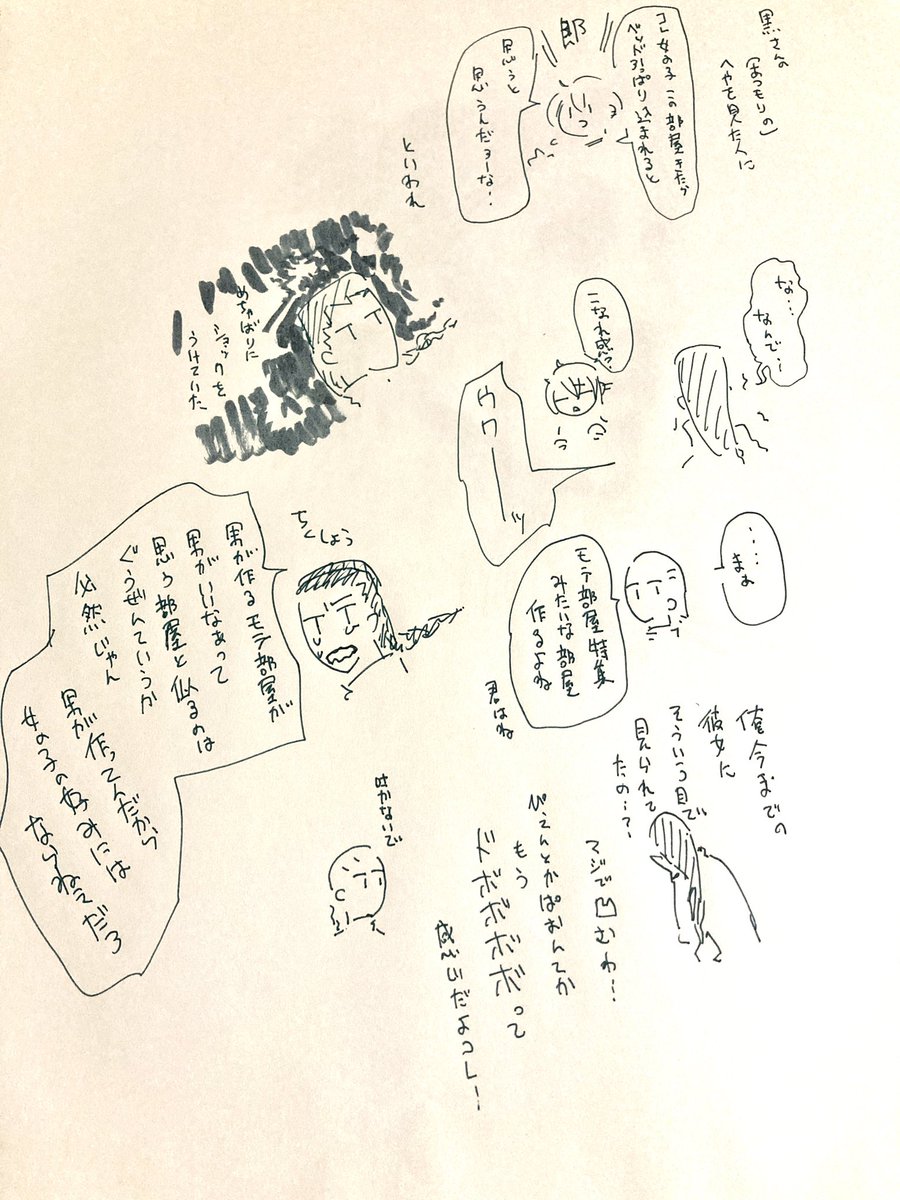 黒さんの
(あつもりの)
へやを見た人に
コレ女の子この部屋きたら
ベッド引っぱり込まれると
郎
思うと
思うんだヨーな…
といわれ
めちゃばりに
ショックを
うけていた
な…
なんで…
こなれ感?
ウワーーッ
……まぁ
モテ部屋特集
みたいな部屋
作るよね
君はね
ちくしょう
男が作るモテ部屋が
男がいいなあって
思う部屋と似るのは
ぐうぜんていうか
必然じゃん
男が作ってんだから
女の子の好みには
ならねえだろ
俺今までの
彼女に
そういう目で
見られて
たの…?
マジで凹むわ…
ぴえんとかぱおんてか
もう
ドボボボボって
感じだよコレ!
吐かないで